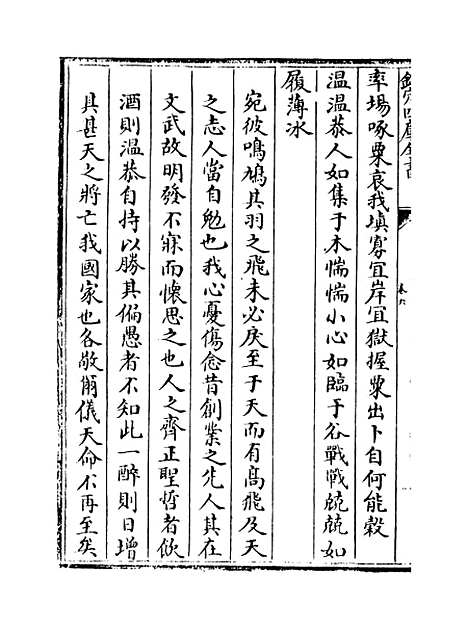 欽定四庫全書
卷
率場啄粟哀我填寡宜岸宜獄握粟出卜自何能榖
温温恭人如集于木惴惴小心如臨于谷戰戰兢兢如
履薄冰
宛彼鳴鳩其羽之飛未必戾至于天而有高飛及天
之志人當自勉也我心憂傷念昔創業之先人其在
文武故明發不寐而懷思之也人之齊正聖哲者飲
酒則温恭自持以勝其偏愚者不知此一醉則日增
具甚天之將亡我國家也各敬爾儀天命不再至矣